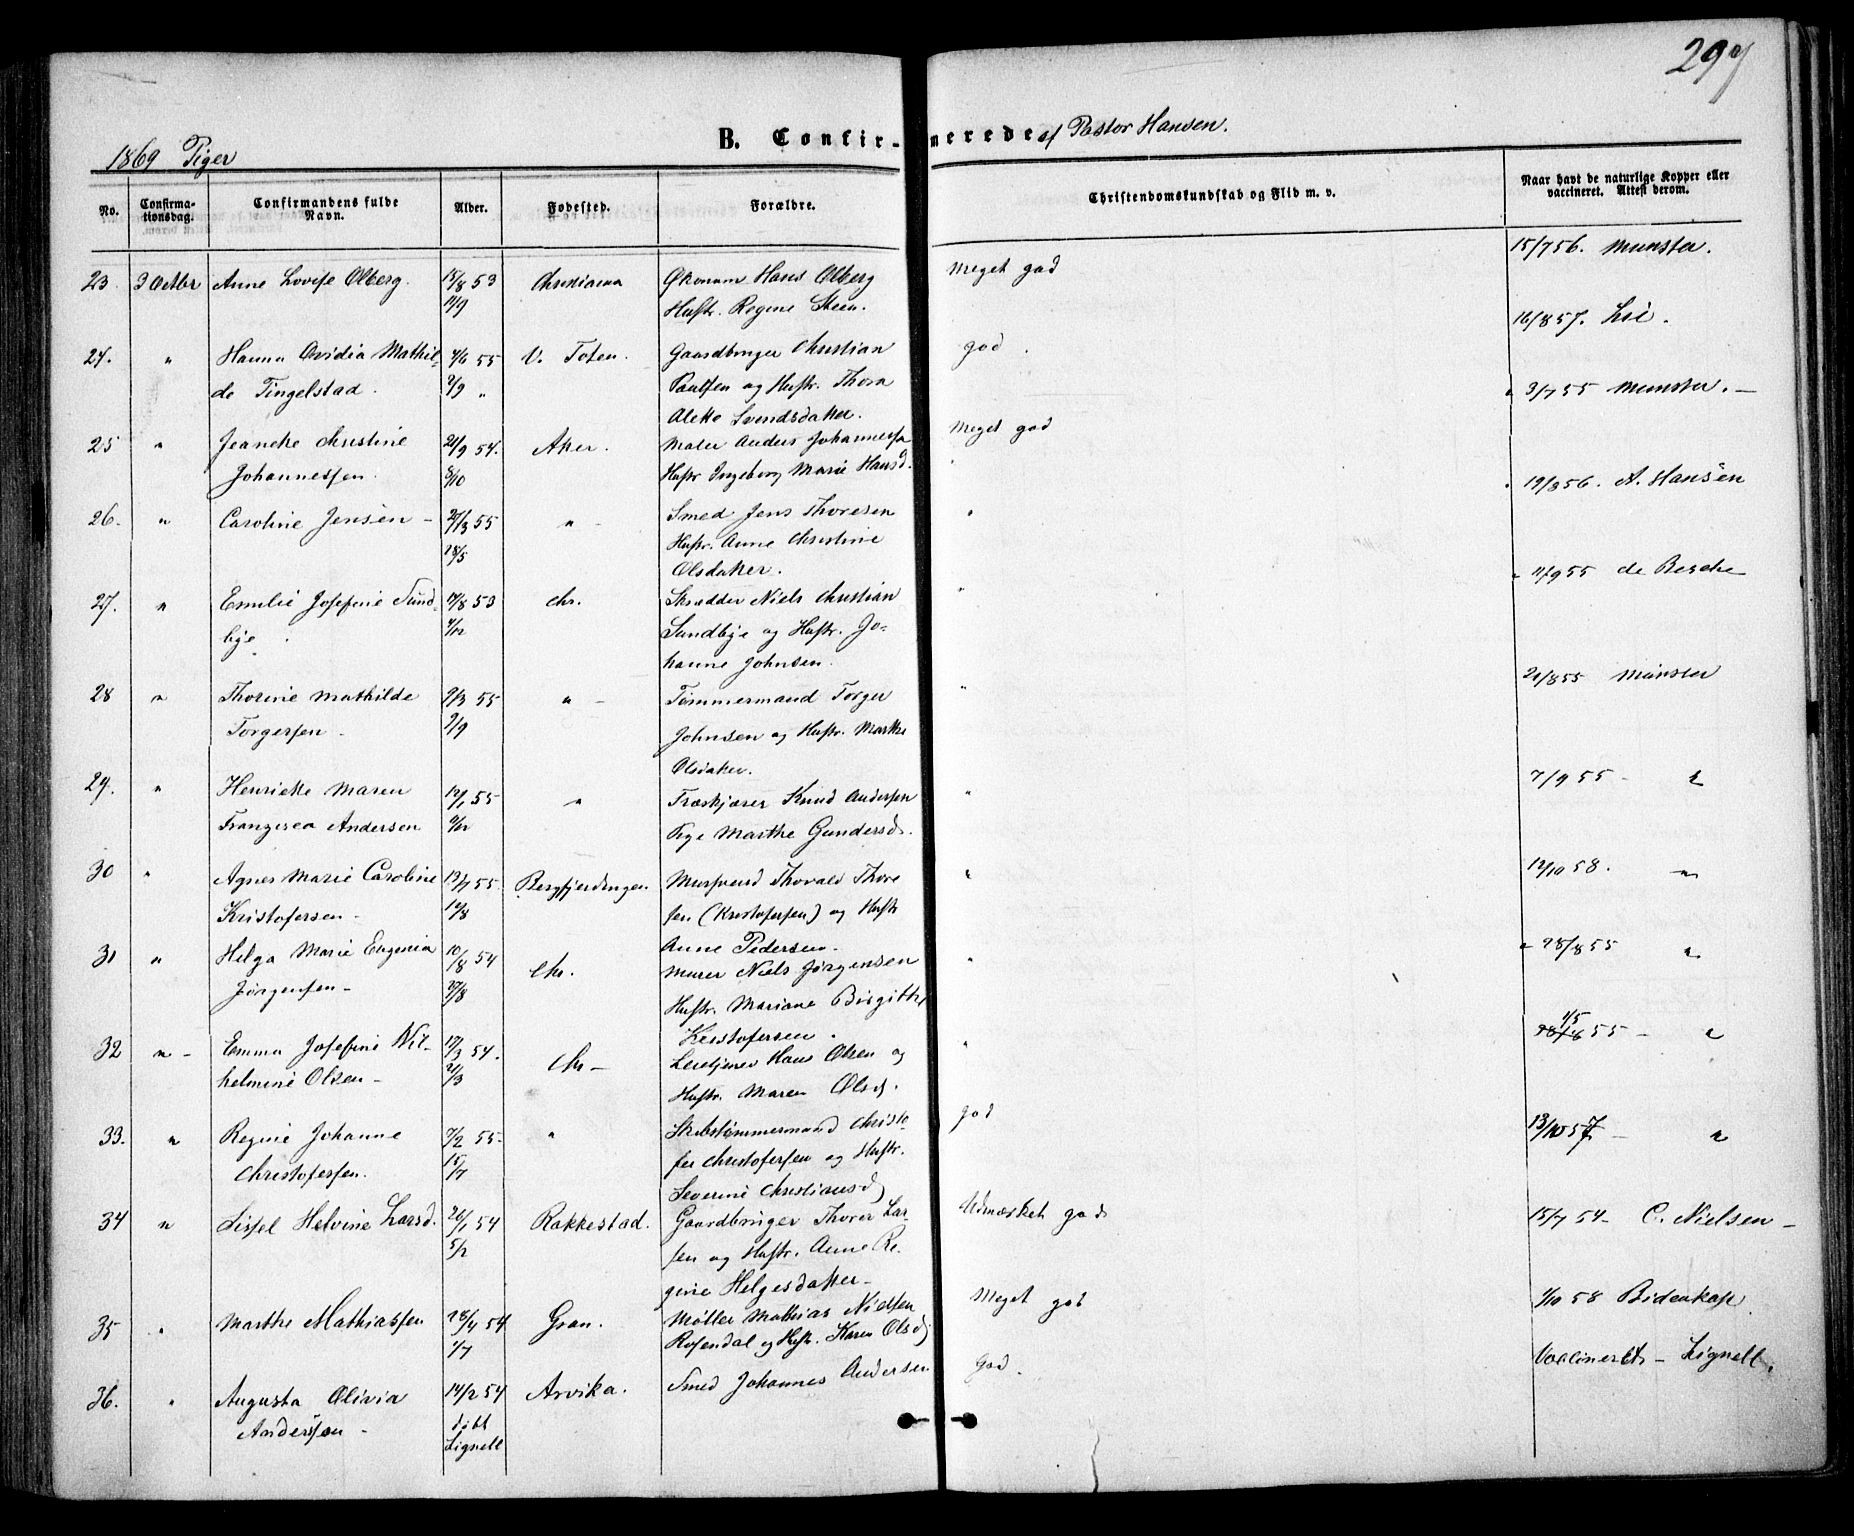 297
1869 Piger
B. Confir-merede af Pastor Hansen.
No. | Confirma-tionsdag. | Confirmandens fulde Navn. | Alder. | Fødested. | Forældre. | Christendomskundskab og Flid m. v. | Naar havt de naturlige Kopper eller vaccineret. Attest derom.
23. 3 Octbr Anne Lovise Olberg. 15/8 53 Christiania Økonom Hans Olberg Meget god 15/7 56. Munster.
11/9 Hustr. Regine Steen.
24. " Hanna Ovidia Mathil- 4/6 55 V. Toten. Gaardbruger Christian god. 16/8 57. Lie.
de Tingelstad. 2/9 " Paulsen og Hustr. Thora
Alette Svendsdatter.
25 " Jeanette Christine 21/9 54. Aker. Maler Anders Johannessen Meget god 3/7 55 Munster. —
Johannessen. 8/10 Hustr Ingeborg Marie Hansd.
26. " Caroline Jensen — 27/3 55 " — Smed Jens Thoresen " 19/8 56. A. Hansen
28/5 Hustr. Anne Christine
Olsdatter.
27. " Emilie Josefine Sund- 17/8 53 Chr. Skrædder Niels Christian " 11/9 55 de Besche
bye. 4/12 Sundbye og Hustr. Jo-
hanne Johnsen.
28 " Thorine Mathilde 9/3 55 " — Tømmermand Torger " 21/8 55 Münster
Torgersen. 9/9 Johnsen og Hustr. Marthe
Olsdatter.
29. " Henriette Maren 12/1 55 " Træskjærer Knud Andersen " 7/9 55 — "
Franzisca Andersen Pige Marthe Gundersd.
30 " Agnes Marie Caroline 19/7 55 Bergfjerdingen Mursvend Thorvald Thore " 12/10 58. "
Kristofersen — 12/8 sen (Kristofersen) og Hustr
Anne Pedersen.
31 " Helga Marie Eugenia 10/8 54 Chr. Murer Niels Jørgensen " 28/8 55 "
Jørgensen — 27/8 Hustr. Mariane Birgitte
Kristofersen.
32 " — Emma Josefine Vil- 17/3 54. Chr — Leietjener Hans Olsen og " 1/5 55 — "
helmine Olsen — 21/3 Hustr. Maren Olsd.
33. " Regine Johanne 7/2 55 — " Skibstømmermand Christo- god 13/10 57 — "
Christofersen. 15/7 fer Christofersen og Hustr.
Severine Christiansd
34 " Lissel Helvine Larsd. 26/1 54 Rakkestad. Gaardbruger Thorer Lar- Udmærket god 15/7 54 — C. Nielsen —
5/2 sen og Hustr. Anne Re-
gine Helgesdatter —
35 " Marthe Mathiassen 28/4 54 Gran. Møller Mathias Nielsen Meget god 1/10 58 Bidenkap
1/7 Rosendal og Hustr. Karen Olsd
36. " Augusta Olivia 14/2 54 Arvika. Smed Johannes Andersen God. Vaccineret — Lignell.
Anderssen — døbt
Lignell